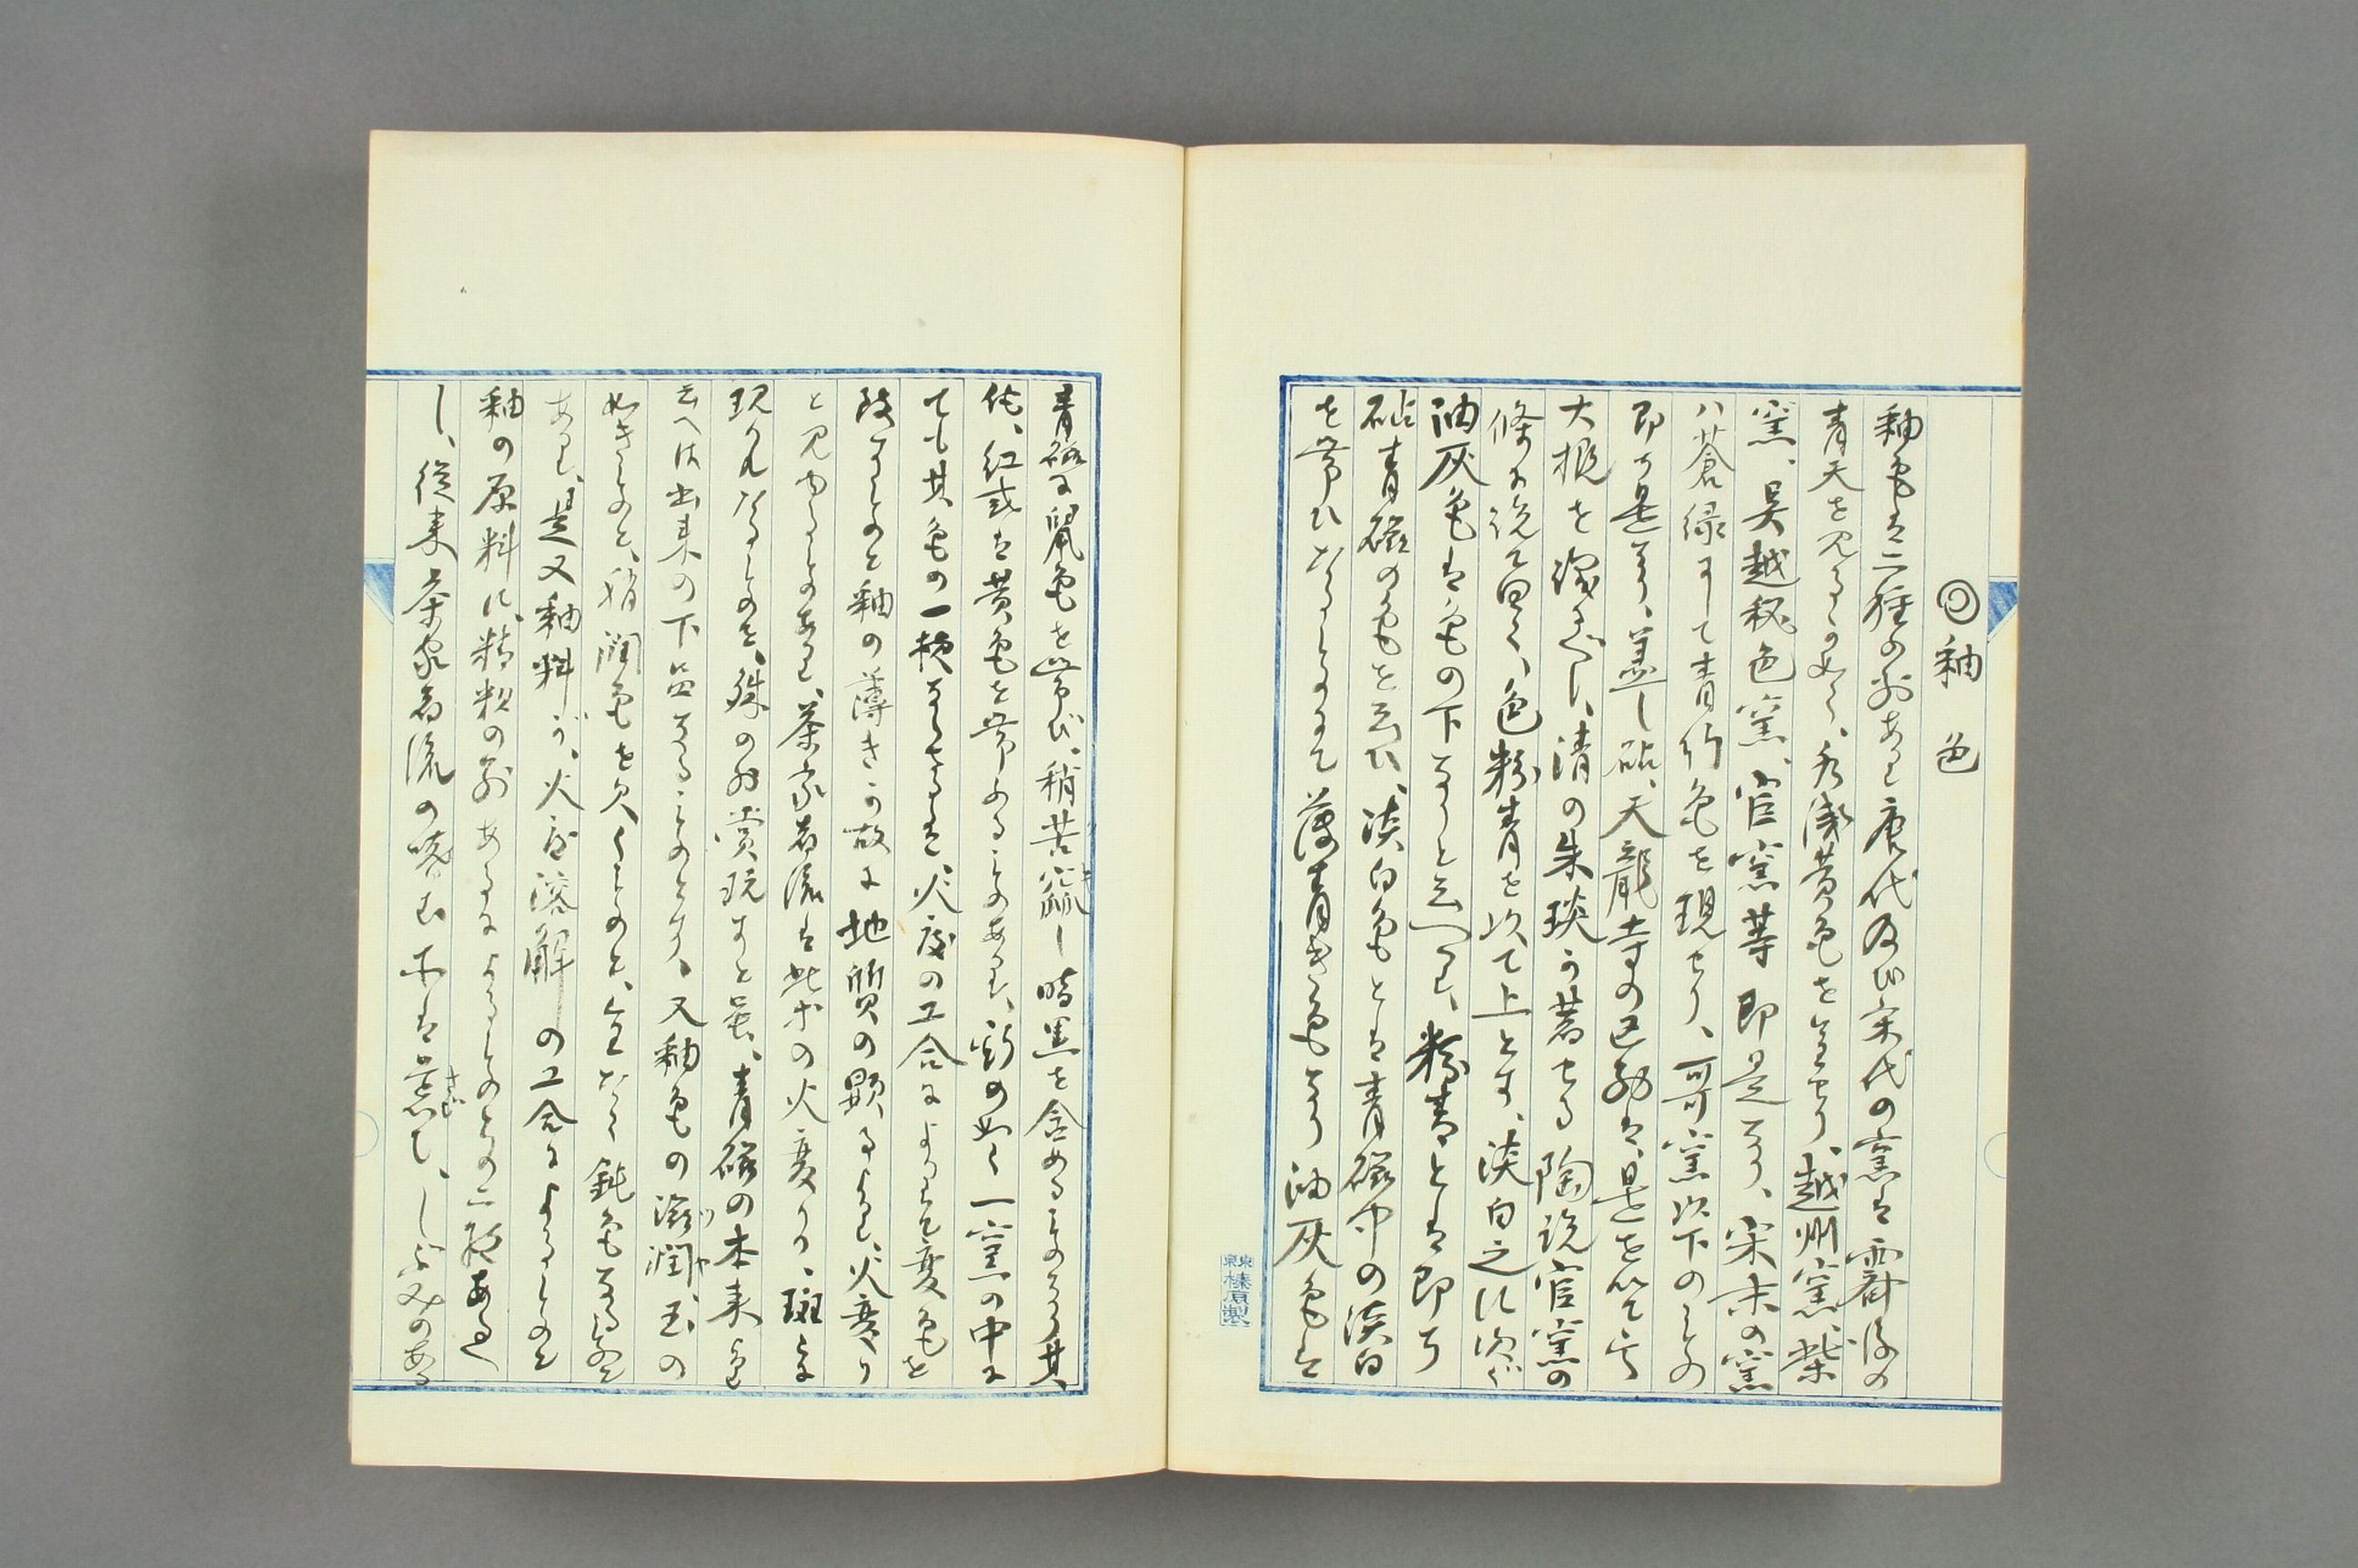 ◎釉色
釉色は二種の別あり唐代及び宋代の窯は霽後の
青天を見るの如く、浅黄色を呈せり、越州窯、柴
窯、呉越秘色窯、官窯等即是なり、宋末の窯
ハ蒼緑にして青竹色を現せり、哥窯以下のもの
即ち是なり、蓋し砧、天龍寺の区別は、是を以て
大概を識べし、清の朱琰の著せる陶説官窯の
條に説て曰く、色粉青を以て上とす、淡白之に次ぐ
油灰色は色の下なりと云へり、粉青とは即ち
砧青磁の色を云ひ、淡白色とは青磁中の淡白
を帯ひたるものにて薄青き色なり油灰色は
青磁に鼠色を帯び、稍苦 し暗黒を含めるものなり其
他、紅或は黄色を帯ふるものあり、斯の如く一窯の中に
ても其色の一様ならさるは、火度の工合によりて変色を
致すものと釉の薄きか故に地質の顕るゝより、火変り
と見ゆるものあり、茶家者流は此等の火変り、斑に
現れたるものを、殊の外賞玩すと雖、青磁の本来より
云へは出来の下品なるものとす、又釉色の滋潤、玉の
如きものと、稍潤色を欠くものと、全たく鈍色なる別
あり、是又釉料が、火度溶解の工合によるものと
釉の原料に、精粗の別あるによるものとの二般あるべ
し、従来茶家者流の 云ふ